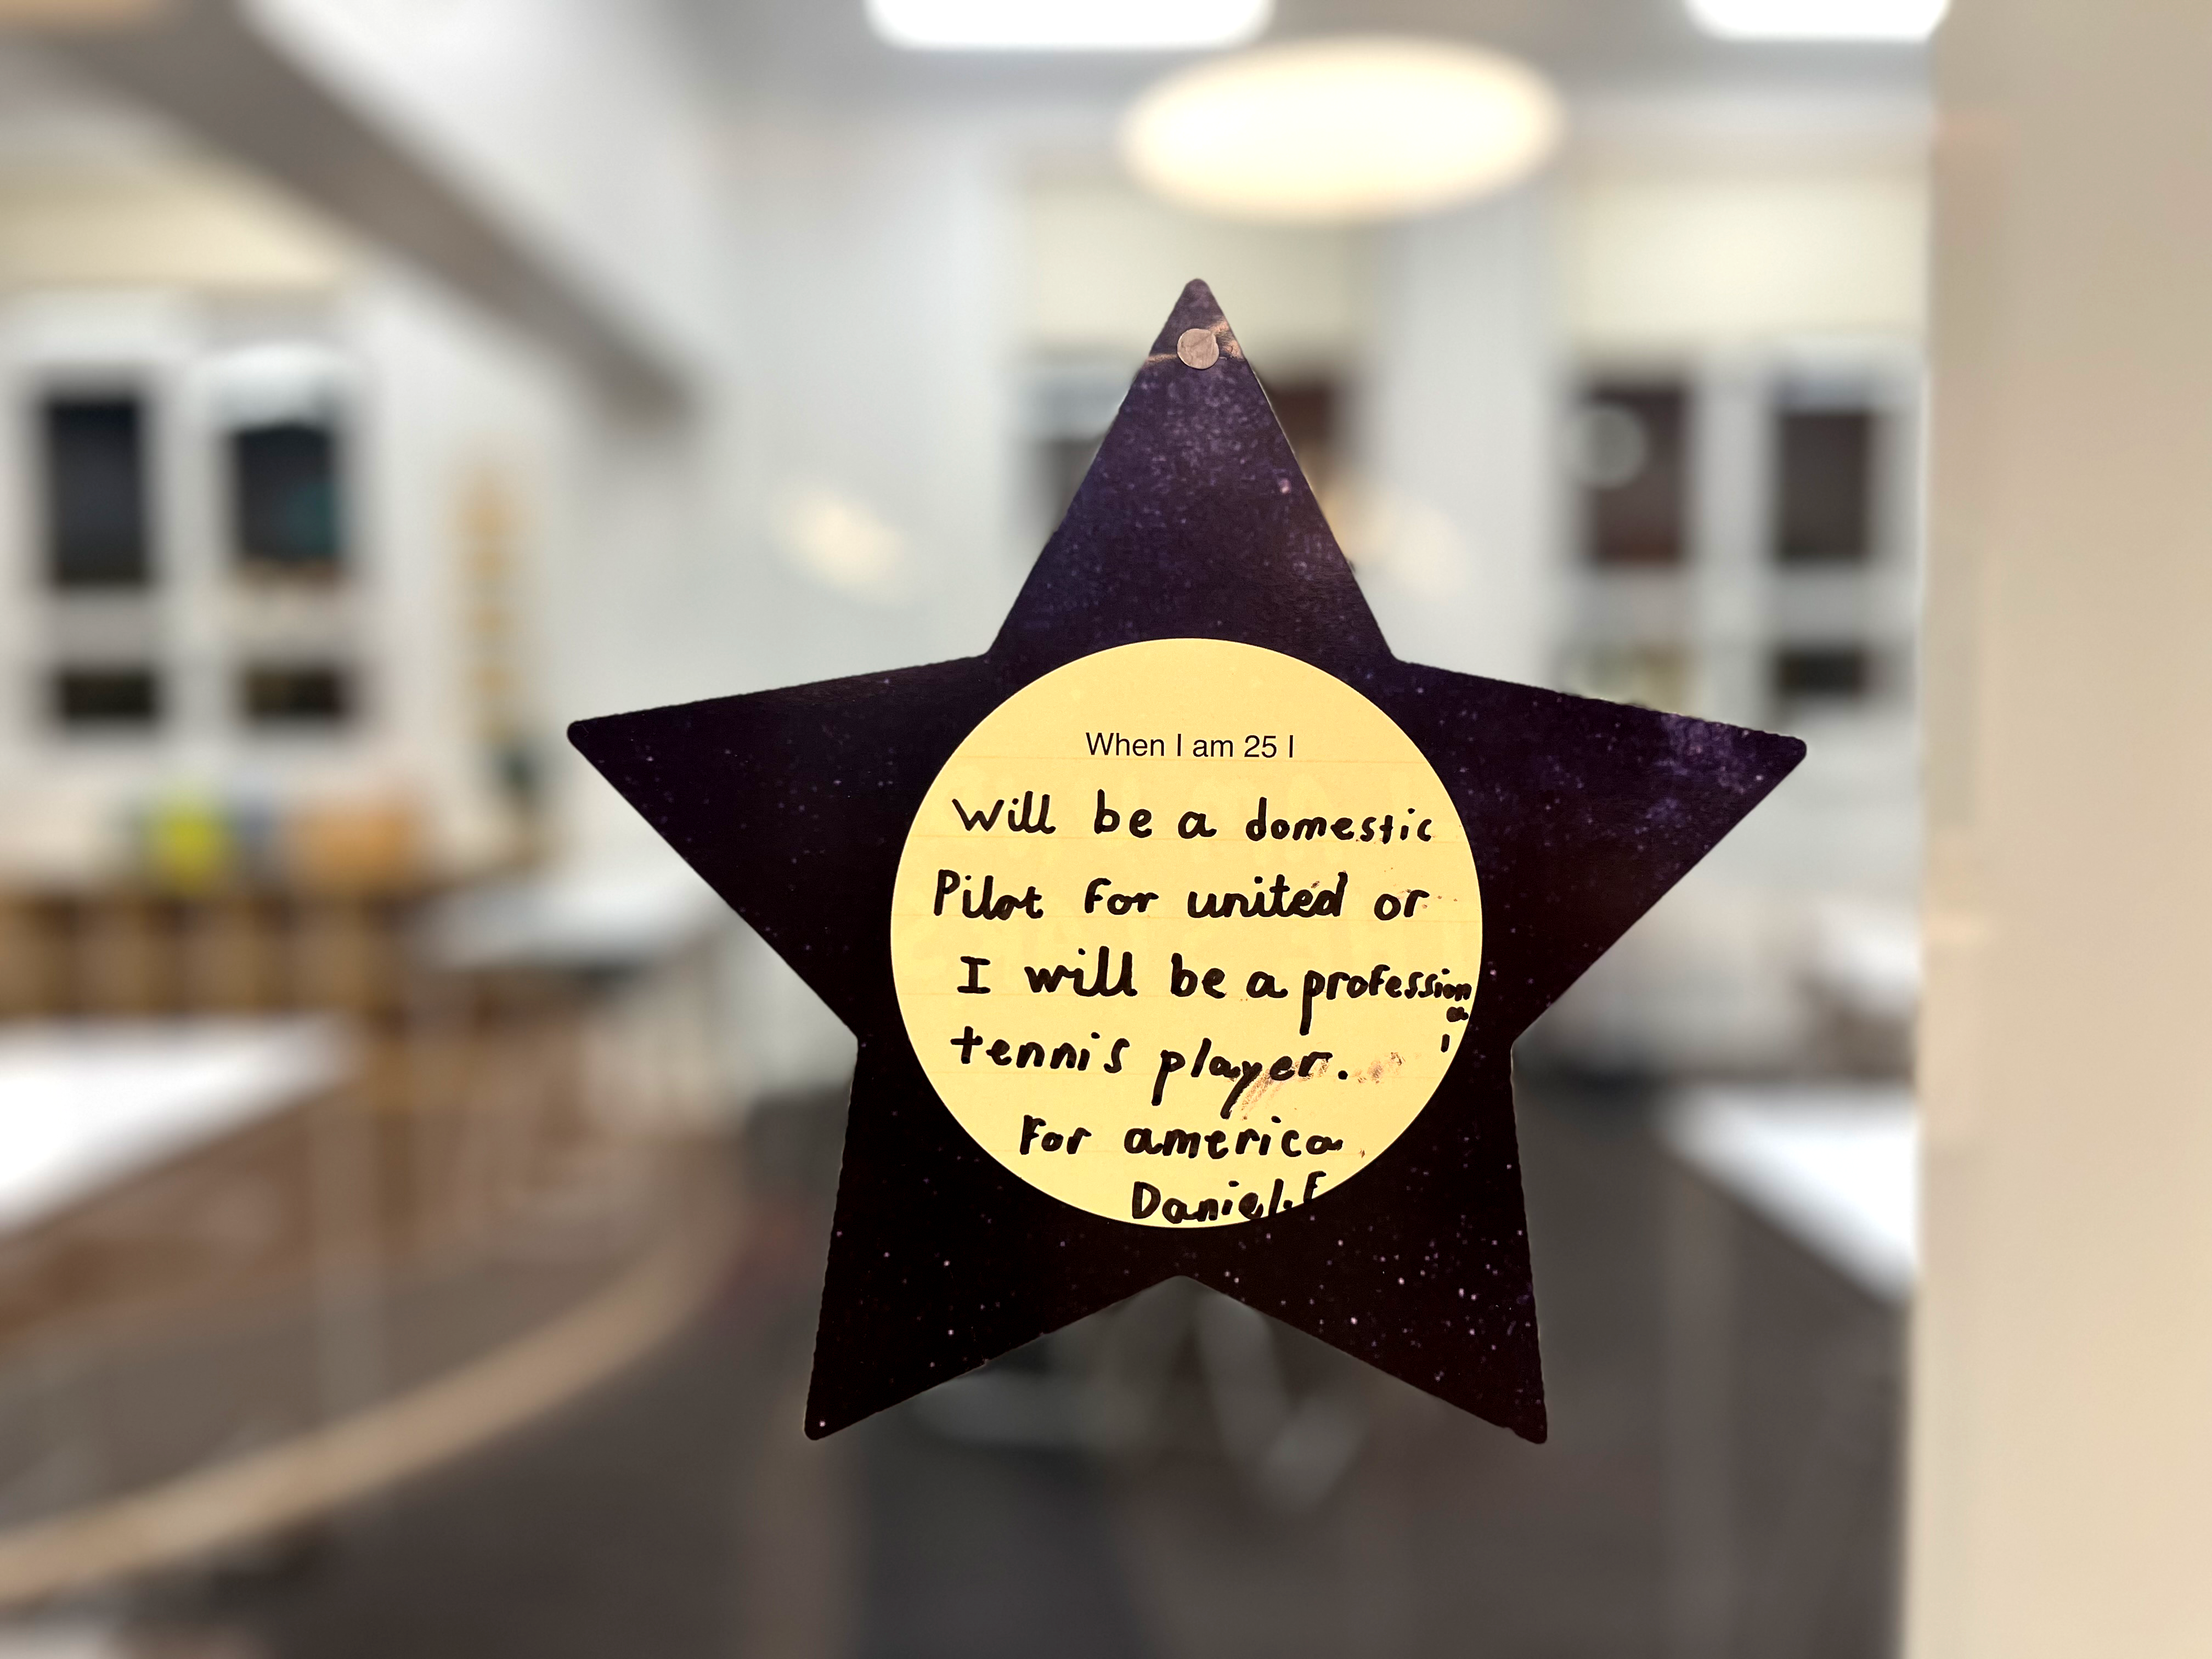 When I am 25 I
Will be a domestic
Pilot for united or
I will be a profession
a
l
tennis player.
For america
Daniel.F